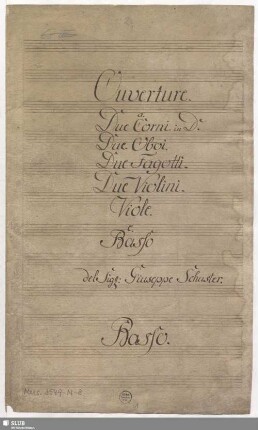 Ouverture.
a
Due Corni in D.
Due Oboi.
Due Fagotti.
Due Violini.
Viole.
e
Basso
del Sigr: Giuseppe Schuster.
Basso.
SLUB